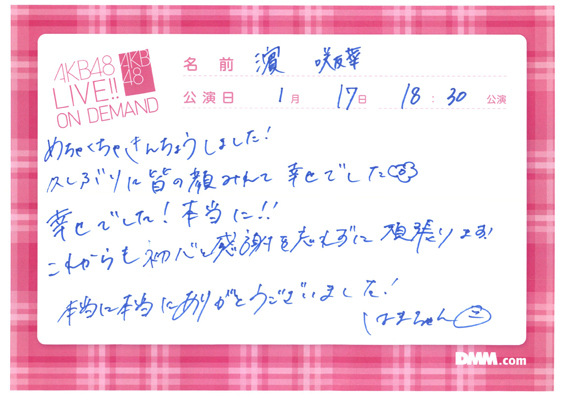 AKB48
LIVE!!
ON DEMAND
AKB
48
名前 濵 咲友菜
公演日 1月 17日 18:30 公演
めちゃくちゃきんちょうしました!
久しぶりに皆の顔みれて 幸せでした
幸せでした!本当に!!
これからも初心と感謝を忘れずに頑張ります!
本当に本当にありがとうございました!
はまちゃん
DMM.com